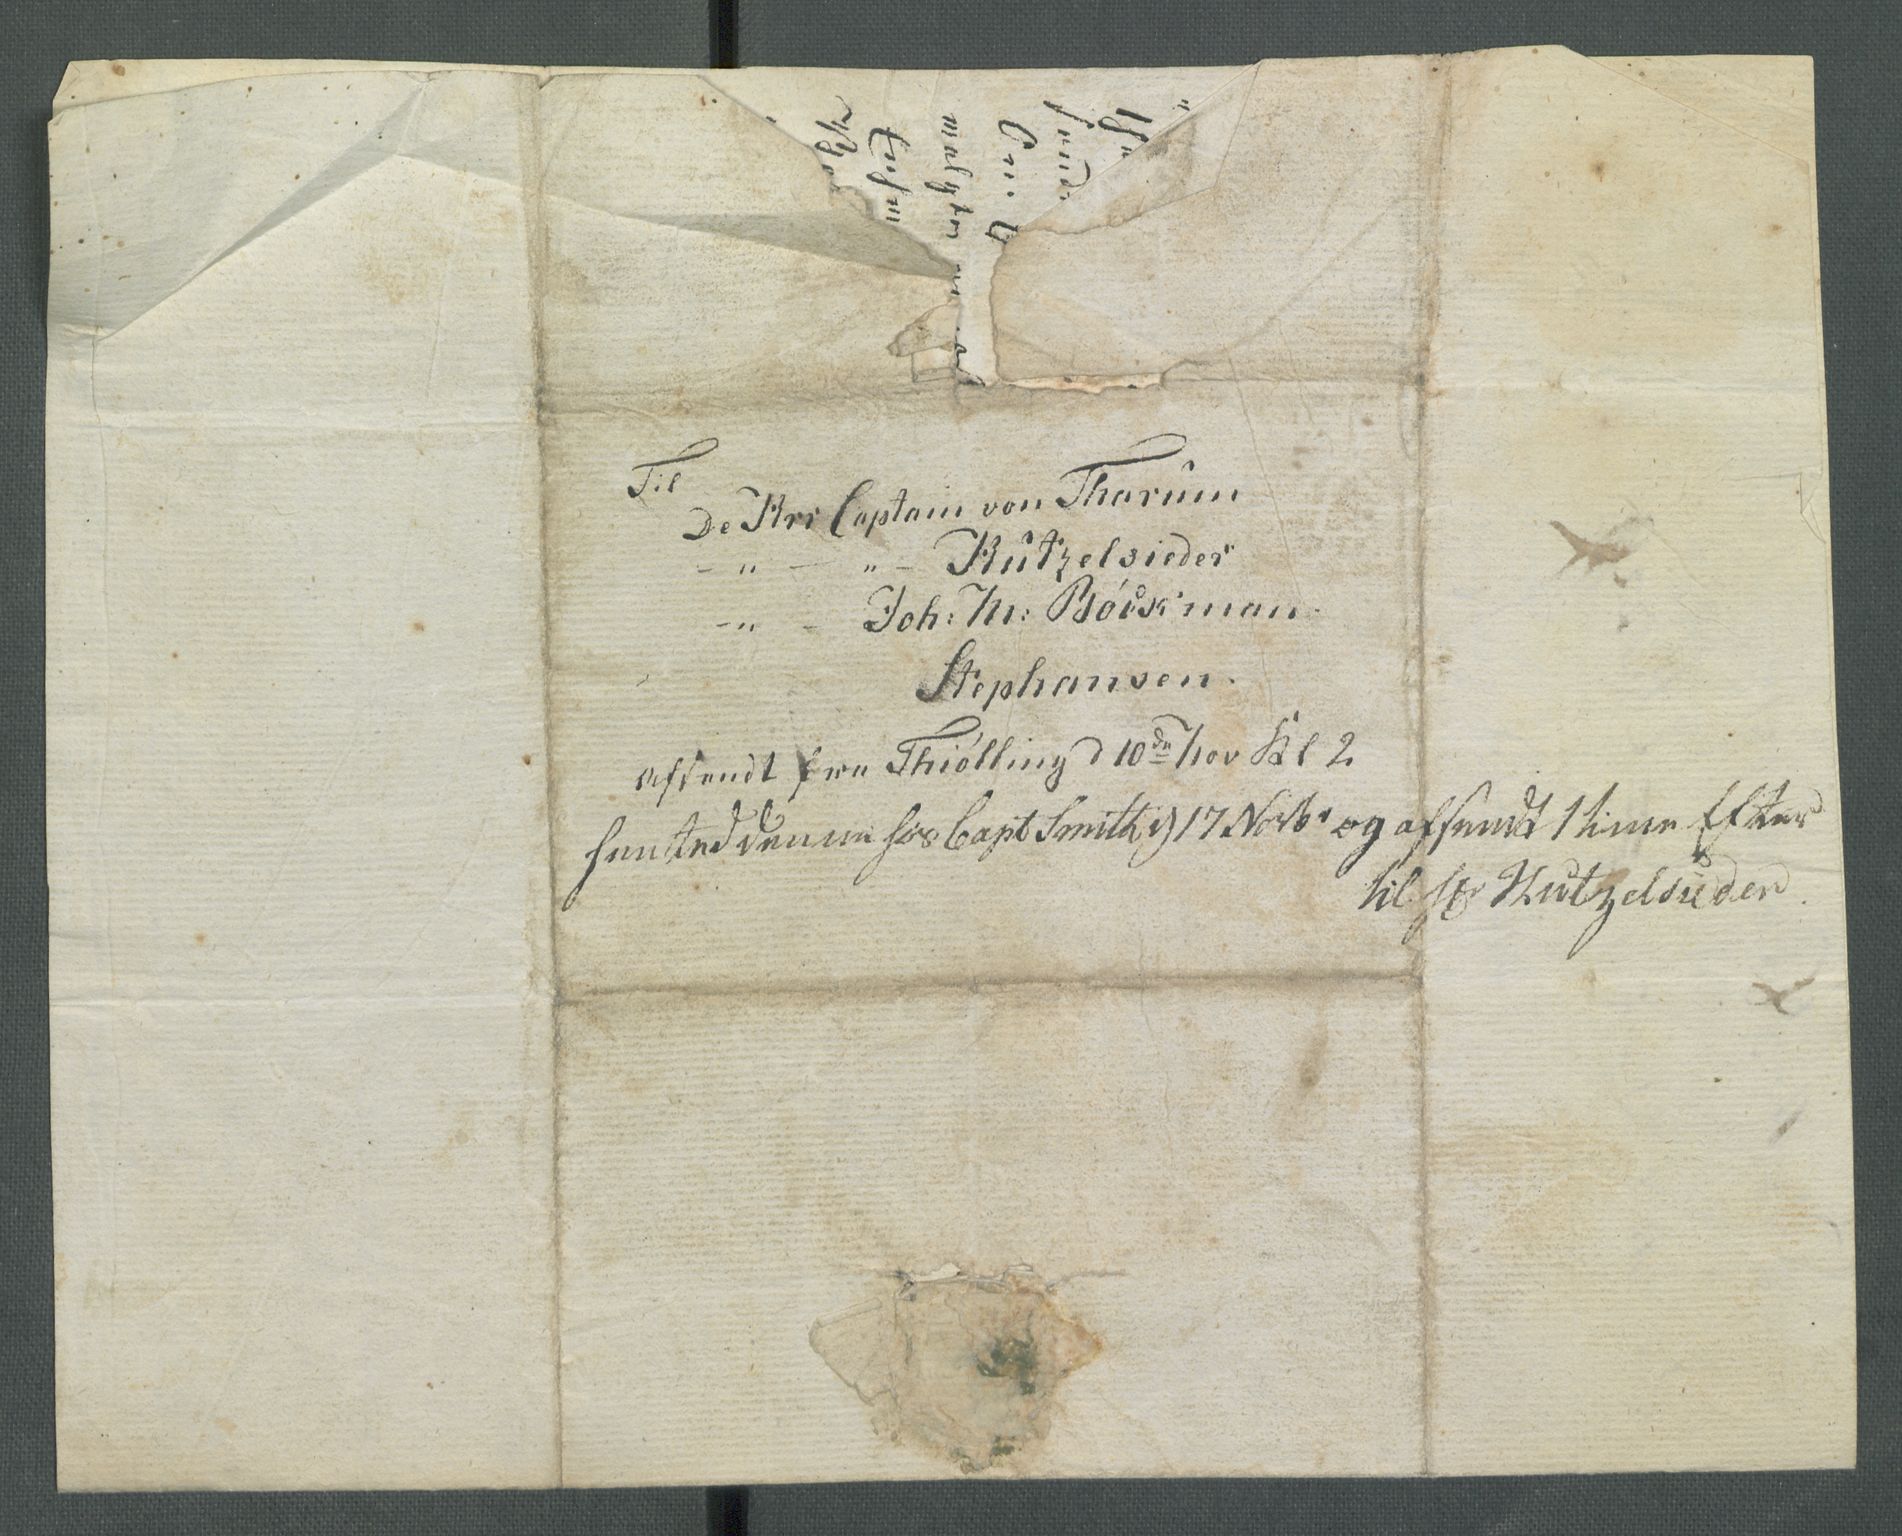 Til
De Hrr Captain von Tharum
— " — " — Kutzelsieder
— " — Joh: M: Böckman
Stephansen.
afsendt fra Thiölling d 10de Nov Kl 2
denne hos Capt Smith d 17 Novbr og afsendt 1 time Efter
til Hr Kutzelsieder